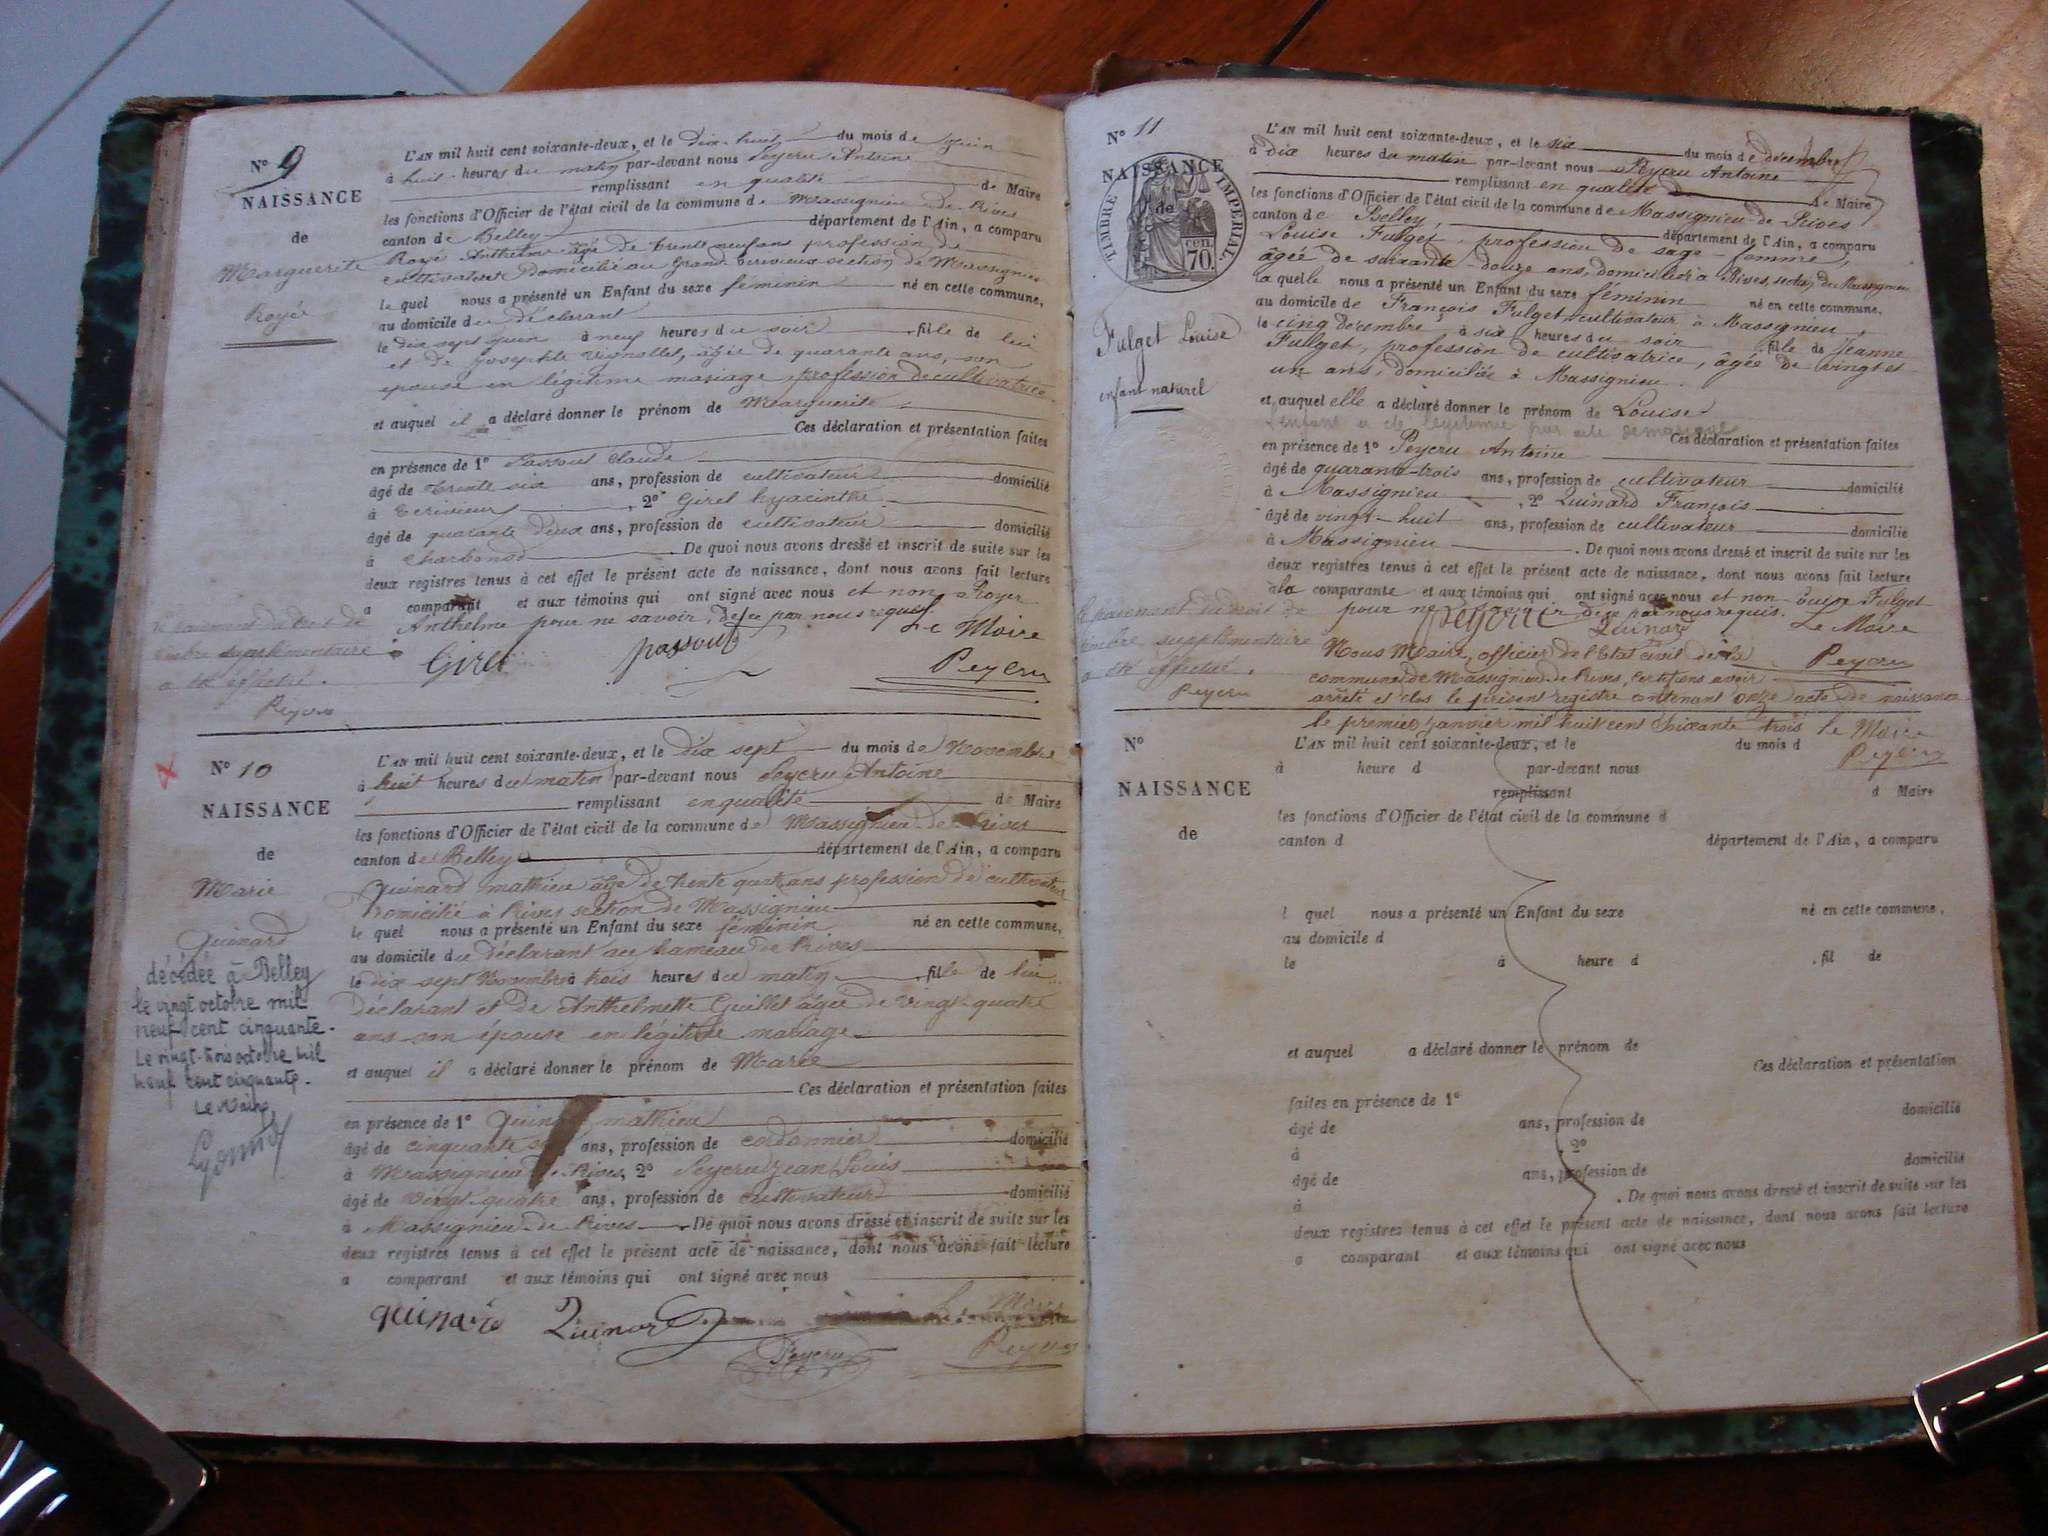 N° 9
NAISSANCE
de
Marguerite
Royé
L'AN mil huit cent soixante-deux, et le dix-huit du mois de Juin
à huit heures du matin par-devant nous Peycru Antoine
remplissant en qualité de Maire
les fonctions d'Officier de l'état civil de la commune de Massignieu de Rives
canton de Belley département de l'Ain, a comparu
Royé Anthelme âgé de trente neuf ans profession de
cultivateur Domicilié au Grand section de Massignieu
le quel nous a présenté un Enfant du sexe féminin né en cette commune,
au domicile du déclarant
le dix sept Juin à neuf heures du soir . fille de lui
et de Josephte Vignollet, âgée de quarante ans, son
épouse en légitime mariage, profession de cultivatrice
et auquel il a déclaré donner le prénom de Marguerite
Ces déclaration et présentation faites
en présence de 1° Passout Claude
âgé de trente six ans, profession de cultivateur domicilié
à , 2° Girel hyacinthe
âgé de quarante deux ans, profession de cultivateur domicilié
à Charbonod . De quoi nous avons dressé et inscrit de suite sur les
deux registres tenus à cet effet le présent acte de naissance, dont nous avons fait lecture
a comparant et aux témoins qui ont signé avec nous et non Royer
Anthelme pour ne savoir, de ce par nous requis Le Maire
Girel passout Peycru
le paiement du droit de
timbre supplémentaire
a été effectué.
Peycru
N° 10
NAISSANCE
de
Marie
Quinard
décédée à Belley
le vingt octobre mil
neuf cent cinquante.
Le vingt-trois octobre mil
neuf cent cinquante.
Le Maire
L'AN mil huit cent soixante-deux, et le dix sept du mois de Novembre
à huit heures du matin par-devant nous Peycru Antoine
remplissant en qualité de Maire
les fonctions d'Officier de l'état civil de la commune de Massignieu de Rives
canton de Belley département de l'Ain, a comparu
Quinard mathieu âgé de trente quatre ans profession de cultivateur
Domicilié à Rives section de Massignieu
le quel nous a présenté un Enfant du sexe féminin né en cette commune,
au domicile du déclarant au hameau de Rives
le dix sept Novembre à trois heures du matin . fille de lui
Déclarant et de Anthelmette Guillet âgée de vingt-quatre
ans son épouse en légitime mariage
et auquel il a déclaré donner le prénom de Marie
Ces déclaration et présentation faites
en présence de 1° mathieu
âgé de cinquante ans, profession de cordonnier domicilié
à Massignieu Rives, 2° Peycru Jean Louis
âgé de vingt quatre ans, profession de cultivateur domicilié
à Massignieu de Rives . De quoi nous avons dressé et inscrit de suite sur les
deux registres tenus à cet effet le présent acte de naissance, dont nous avons fait lecture
a comparant et aux témoins qui ont signé avec nous
quinard Quinard Le Maire
Peycru Peycru
N° 11
NAISSANCE
de
TIMBRE IMPERIAL
70 cen.
Fulget Louise
enfant naturel
L'AN mil huit cent soixante-deux, et le six du mois de décembre
à dix heures du matin par-devant nous Peycru Antoine
remplissant en qualité de Maire
les fonctions d'Officier de l'état civil de la commune de Massignieu-de-Rives
canton de Belley, département de l'Ain, a comparu
Louise Fulget, profession de sage-femme,
âgée de soixante-douze ans, domiciliée à Rives, section de Massignieu
la quelle nous a présenté un Enfant du sexe féminin né en cette commune,
au domicile de François Fulget, cultivateur à Massignieu,
le cinq décembre, à six heures du soir . fille de Jeanne
Fulget, profession de cultivatrice, âgée de vingt et
un ans, domiciliée à Massignieu.
et auquel elle a déclaré donner le prénom de Louise
l'enfant a été légitimé par acte de mariage
Ces déclaration et présentation faites
en présence de 1° Peycru Antoine
âgé de quarante-trois ans, profession de cultivateur domicilié
à Massignieu , 2° Quinard François
âgé de vingt-huit ans, profession de cultivateur domicilié
à Massignieu . De quoi nous avons dressé et inscrit de suite sur les
deux registres tenus à cet effet le présent acte de naissance, dont nous avons fait lecture
a la comparante et aux témoins qui ont signé avec nous et non Louise Fulget
pour ne de ce par nous requis. Le Maire
Quinard
Peycru
le paiement du droit de
timbre supplémentaire
a été effectué.
Peycru
Nous Maire, officier de l'Etat civil de la
commune de Massignieu de Rives, certifions avoir
arrêté et clos le présent registre contenant onze acte de naissance
le premier Janvier mil huit cent soixante trois le Maire
Peycru
N°
NAISSANCE
de
L'AN mil huit cent soixante-deux, et le du mois d
à heure d par-devant nous
remplissant d Maire
les fonctions d'Officier de l'état civil de la commune d
canton d département de l'Ain, a comparu
l quel nous a présenté un Enfant du sexe né en cette commune,
au domicile d
le à heure d . fil de
et auquel a déclaré donner le prénom de
Ces déclaration et présentation
faites en présence de 1° domicilié
âgé de ans, profession de
à , 2°
âgé de ans, profession de domicilié
à . De quoi nous avons dressé et inscrit de suite sur les
deux registres tenus à cet effet le présent acte de naissance, dont nous avons fait lecture
a comparant et aux témoins qui ont signé avec nous